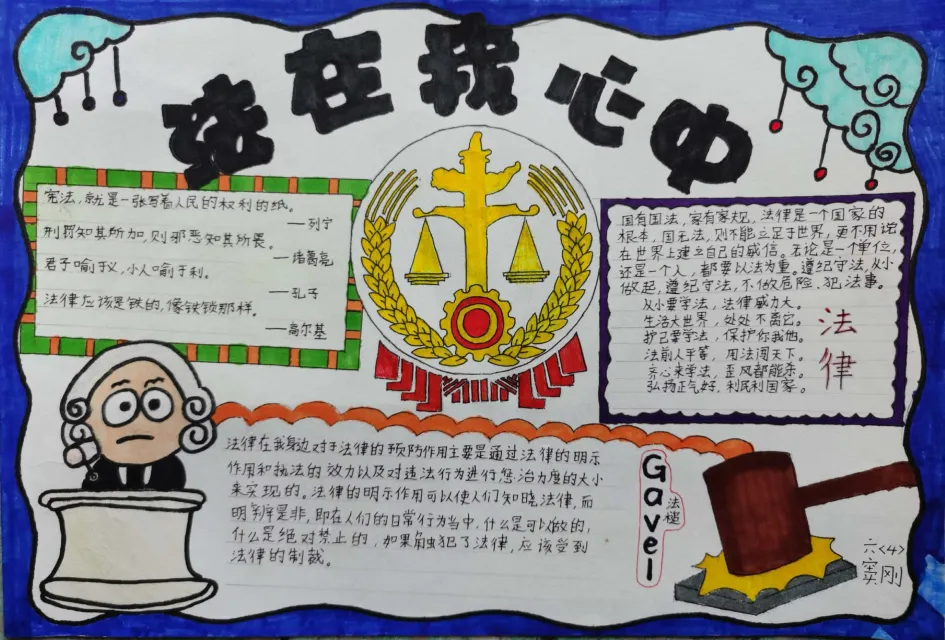 法在我心中
宪法,就是一张写着人民的权利的纸。
——列宁
刑罚知其所加,则邪恶知其所畏。
——诸葛亮
君子喻于义,小人喻于利。
——孔子
法律应该是铁的,像铁锁那样。
——高尔基
国有国法,家有家规,法律是一个国家的
根本,国无法,则不能立足于世界,更不用说
在世界上建立自己的威信。无论是一个单位,
还是一个人,都要以法为重。遵纪守法,从小
做起,遵纪守法,不做危险、犯法事。
从小要学法,法律威力大。
生活大世界,处处不离它。
护己要学法,保护你我他。
法前人平等,用法闯天下。
齐心来学法,歪风都能杀。
弘扬正气好,利民利国家。
法律
法律在我身边对于法律的预防作用主要是通过法律的明示
作用和执法的效力以及对违法行为进行惩治力度的大小
来实现的。法律的明示作用可以使人们知晓法律,而
明辨是非,即在人们的日常行为当中,什么是可以做的,
什么是绝对禁止的,如果触犯了法律,应该受到
法律的制裁。
Gavel
法槌
六<4>
窦刚